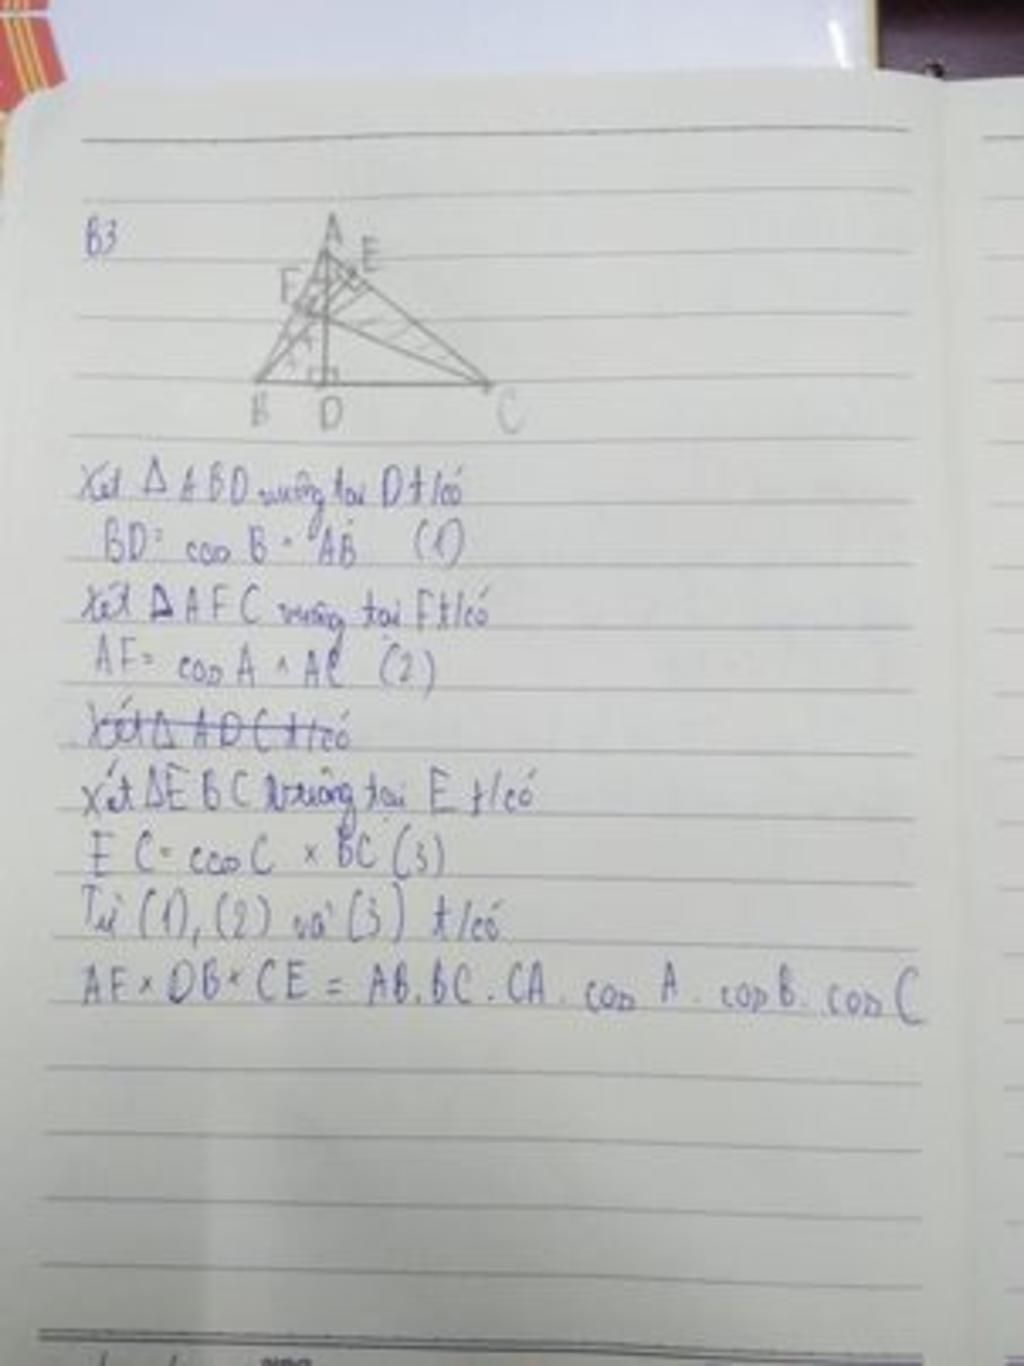 B3
A
E
F
B
D
C
Xét Δ ABD vuông tại D t/có
BD = cos B . AB (1)
Xét Δ AFC vuông tại F t/có
AF = cos A . AC (2)
Xét Δ ADC t/có
Xét ΔEBC vuông tại E t/có
EC = cos C × BC (3)
Từ (1), (2) và (3) t/có
AF × DB × CE = AB . BC . CA . cos A . cos B . cos C